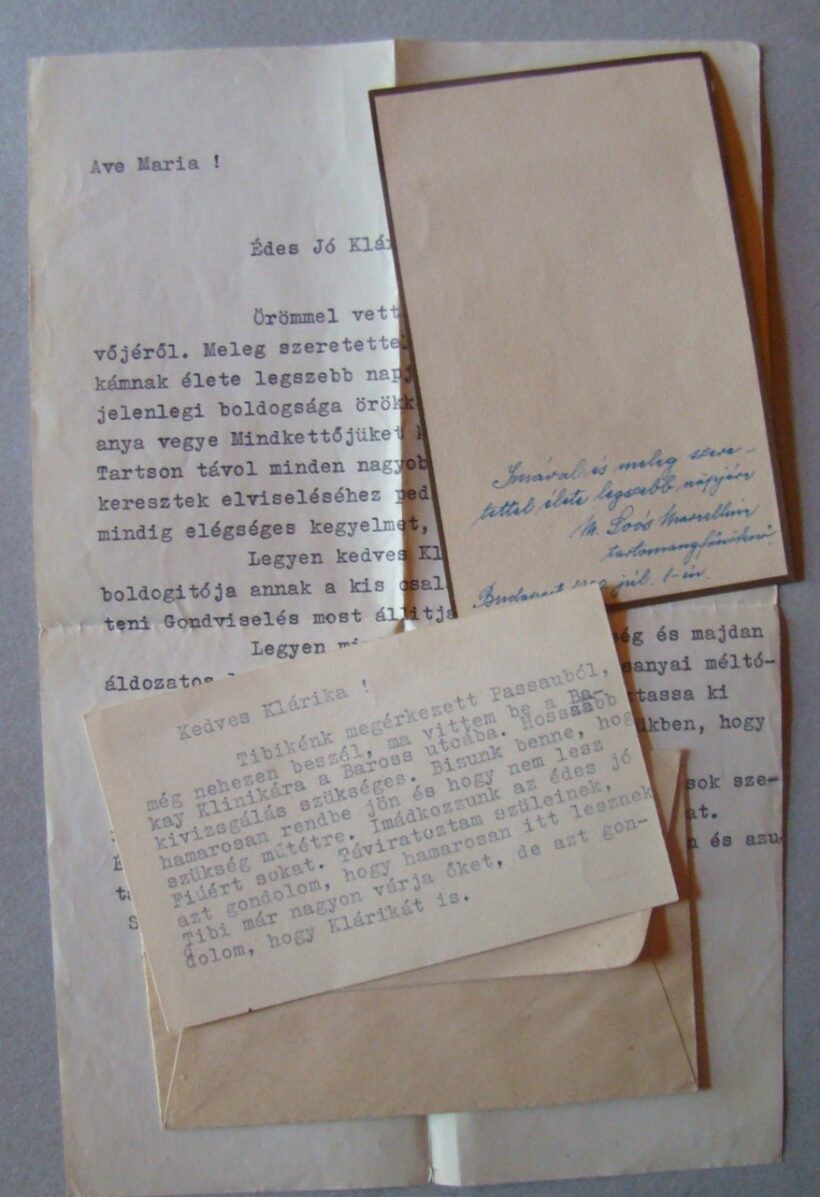 Ave Maria !
Édes Jó Klá
Örömmel vett
vőjéről. Meleg szeretettel
kámnak élete legszebb nap
jelenlegi boldogsága örökk
anya vegye Mindkettőjüket
Tartson távol minden nagyob
keresztek elviseléséhez ped
mindig elégséges kegyelmet,
Legyen kedves Kl
boldogitója annak a kis csal
teni Gondviselés most állitja
Legyen
ég és majdan
áldozatos
sanyai méltó-
tassa ki
kben, hogy
sok sze-
at.
n és azu
Imával és meleg szere-
tettel élete legszebb napjára
M. Loós Marcellin
tartományfőnöknő.
Budapest júl. 1-in.
Kedves Klárika !
Tibikénk megérkezett Passauból,
még nehezen beszél, ma vittem be a Ba-
kay Klinikára a Baross utcába. Hosszabb
kivizsgálás szükséges. Bizunk benne, hogy
hamarosan rendbe jön és hogy nem lesz
szükség műtétre. Imádkozzunk az édes jó
Fiúért sokat. Táviratoztam szüleinek,
azt gondolom, hogy hamarosan itt lesznek
Tibi már nagyon várja őket, de azt gon-
dolom, hogy Klárikát is.